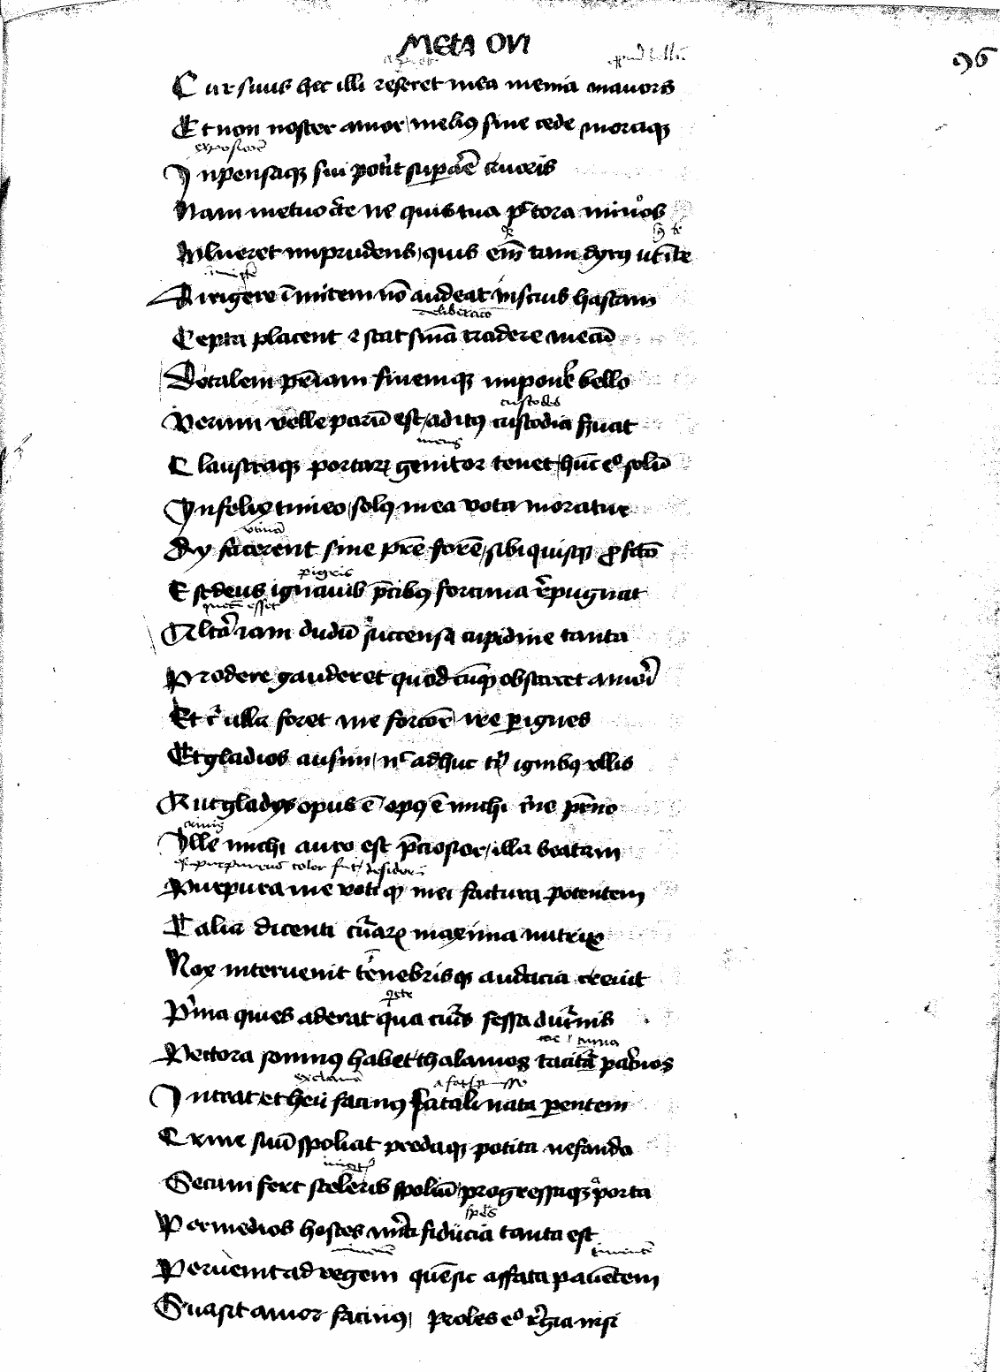 META OVI
96
Cur suus hec illi reseret mea menia mavors
Et non noster amor melius sine cede moraque
exposicione
Inpensaque sui poterit superare cruoris
Nam metuo certe ne quis tua pectora minos
Vulneret imprudens quis enim tam dyrus ut in te
Dirigere inmitem non audeat inscius hastam
deliberatio
Cepta placent et stat sententia tradere mecum
Dotalem patriam finemque imponere bello
custodes
Verum velle parum est aditus custodia servat
meus
Claustraque portarum genitor tenet hunc ego solum
Infelix timeo solus mea vota moratur
utinam
Dy facerent sine patre forem sibi quisque profecto
pigris
Est deus ignavis precibus fortuna repugnat
esset
Altera iam dudum succensa cupidine tanto
Prodere gauderet quodcumque obstaret amori
Et cur ulla foret me fortior ire per ignes
Et gladios ausim nec adhuc tamen ignibus ullis
Aut gladys opus est opus est michi crine paterno
crinis
Ille michi auro est preciosior illa beatam
purpureus color fuit
Purpura me votique mei factura potentem
Talia dicenti curarum maxima nutrix
Nox intervenit tenebrisque audacia crevit
Prima quies aderat qua curis fessa diurnis
Pectora somnus habet thalamos tacita paternos
Intrat et heu facinus fatali nata parentem
Crine suum spoliat predaque potita nefanda
Secum fert sceleris spolium progressaque porta
spes
Per medios hostes meriti fiducia tanta est
timentem
Pervenit ad regem quem sic affata paventem
Suasit amor facinus proles ego regia nisi